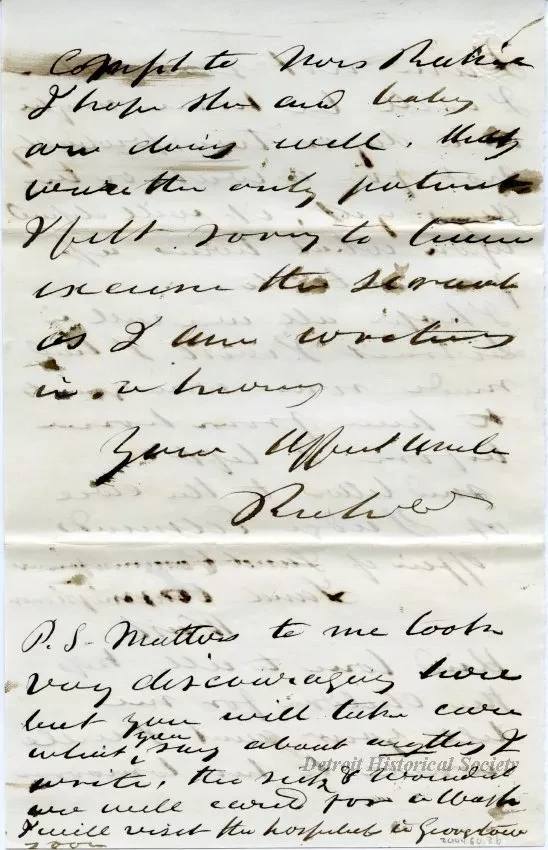 Complt to Mrs
I hope she and baby
are doing well. they
were the only patients
I felt sorry to leave
excuse the scrawl
as I am writing
in a hurry
Your Affect Uncle
P.S. Matters to me look
very discouraging here
but you will take care
what you say about anything I
write, the sick & wounded
are well cared for
I will visit the hospitals in Georgetown
soon
Detroit Historical Society